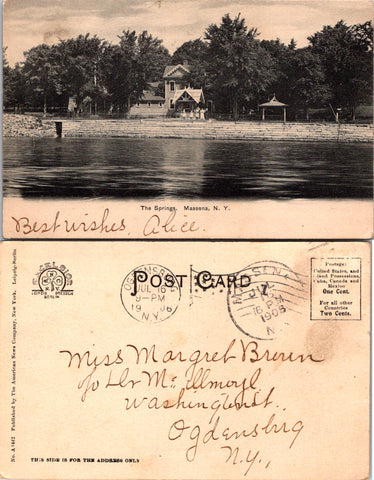 The Springs. Massena, N. Y.
Best wishes, Alice.
POST CARD
OGDENSBURG
JUL 16
9-PM
1906
N.Y.
MASSENA
16
PM
1906
N.
Postage:
United States, and
Island Possessions,
Cuba, Canada and
Mexico
One Cent.
For all other
Countries
Two Cents.
Miss Margret Brown
c/o Dr Mc Illmoyl
Washington St.
Ogdensburg
N.Y.,
No. A 1642 Published by The American News Company, New York. Leipzig-Berlin
THIS SIDE IS FOR THE ADDRESS ONLY